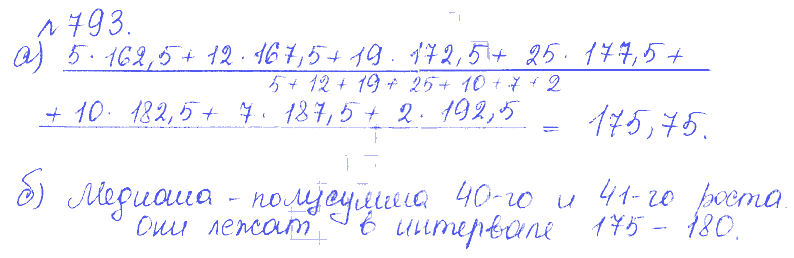 №793.
а) 5·162,5+12·167,5+19·172,5+25·177,5+
5+12+19+25+10+7+2
+10·182,5+7·187,5+2·192,5 = 175,75.
б) Медиана - полусумма 40-го и 41-го роста.
Они лежат в интервале 175-180.